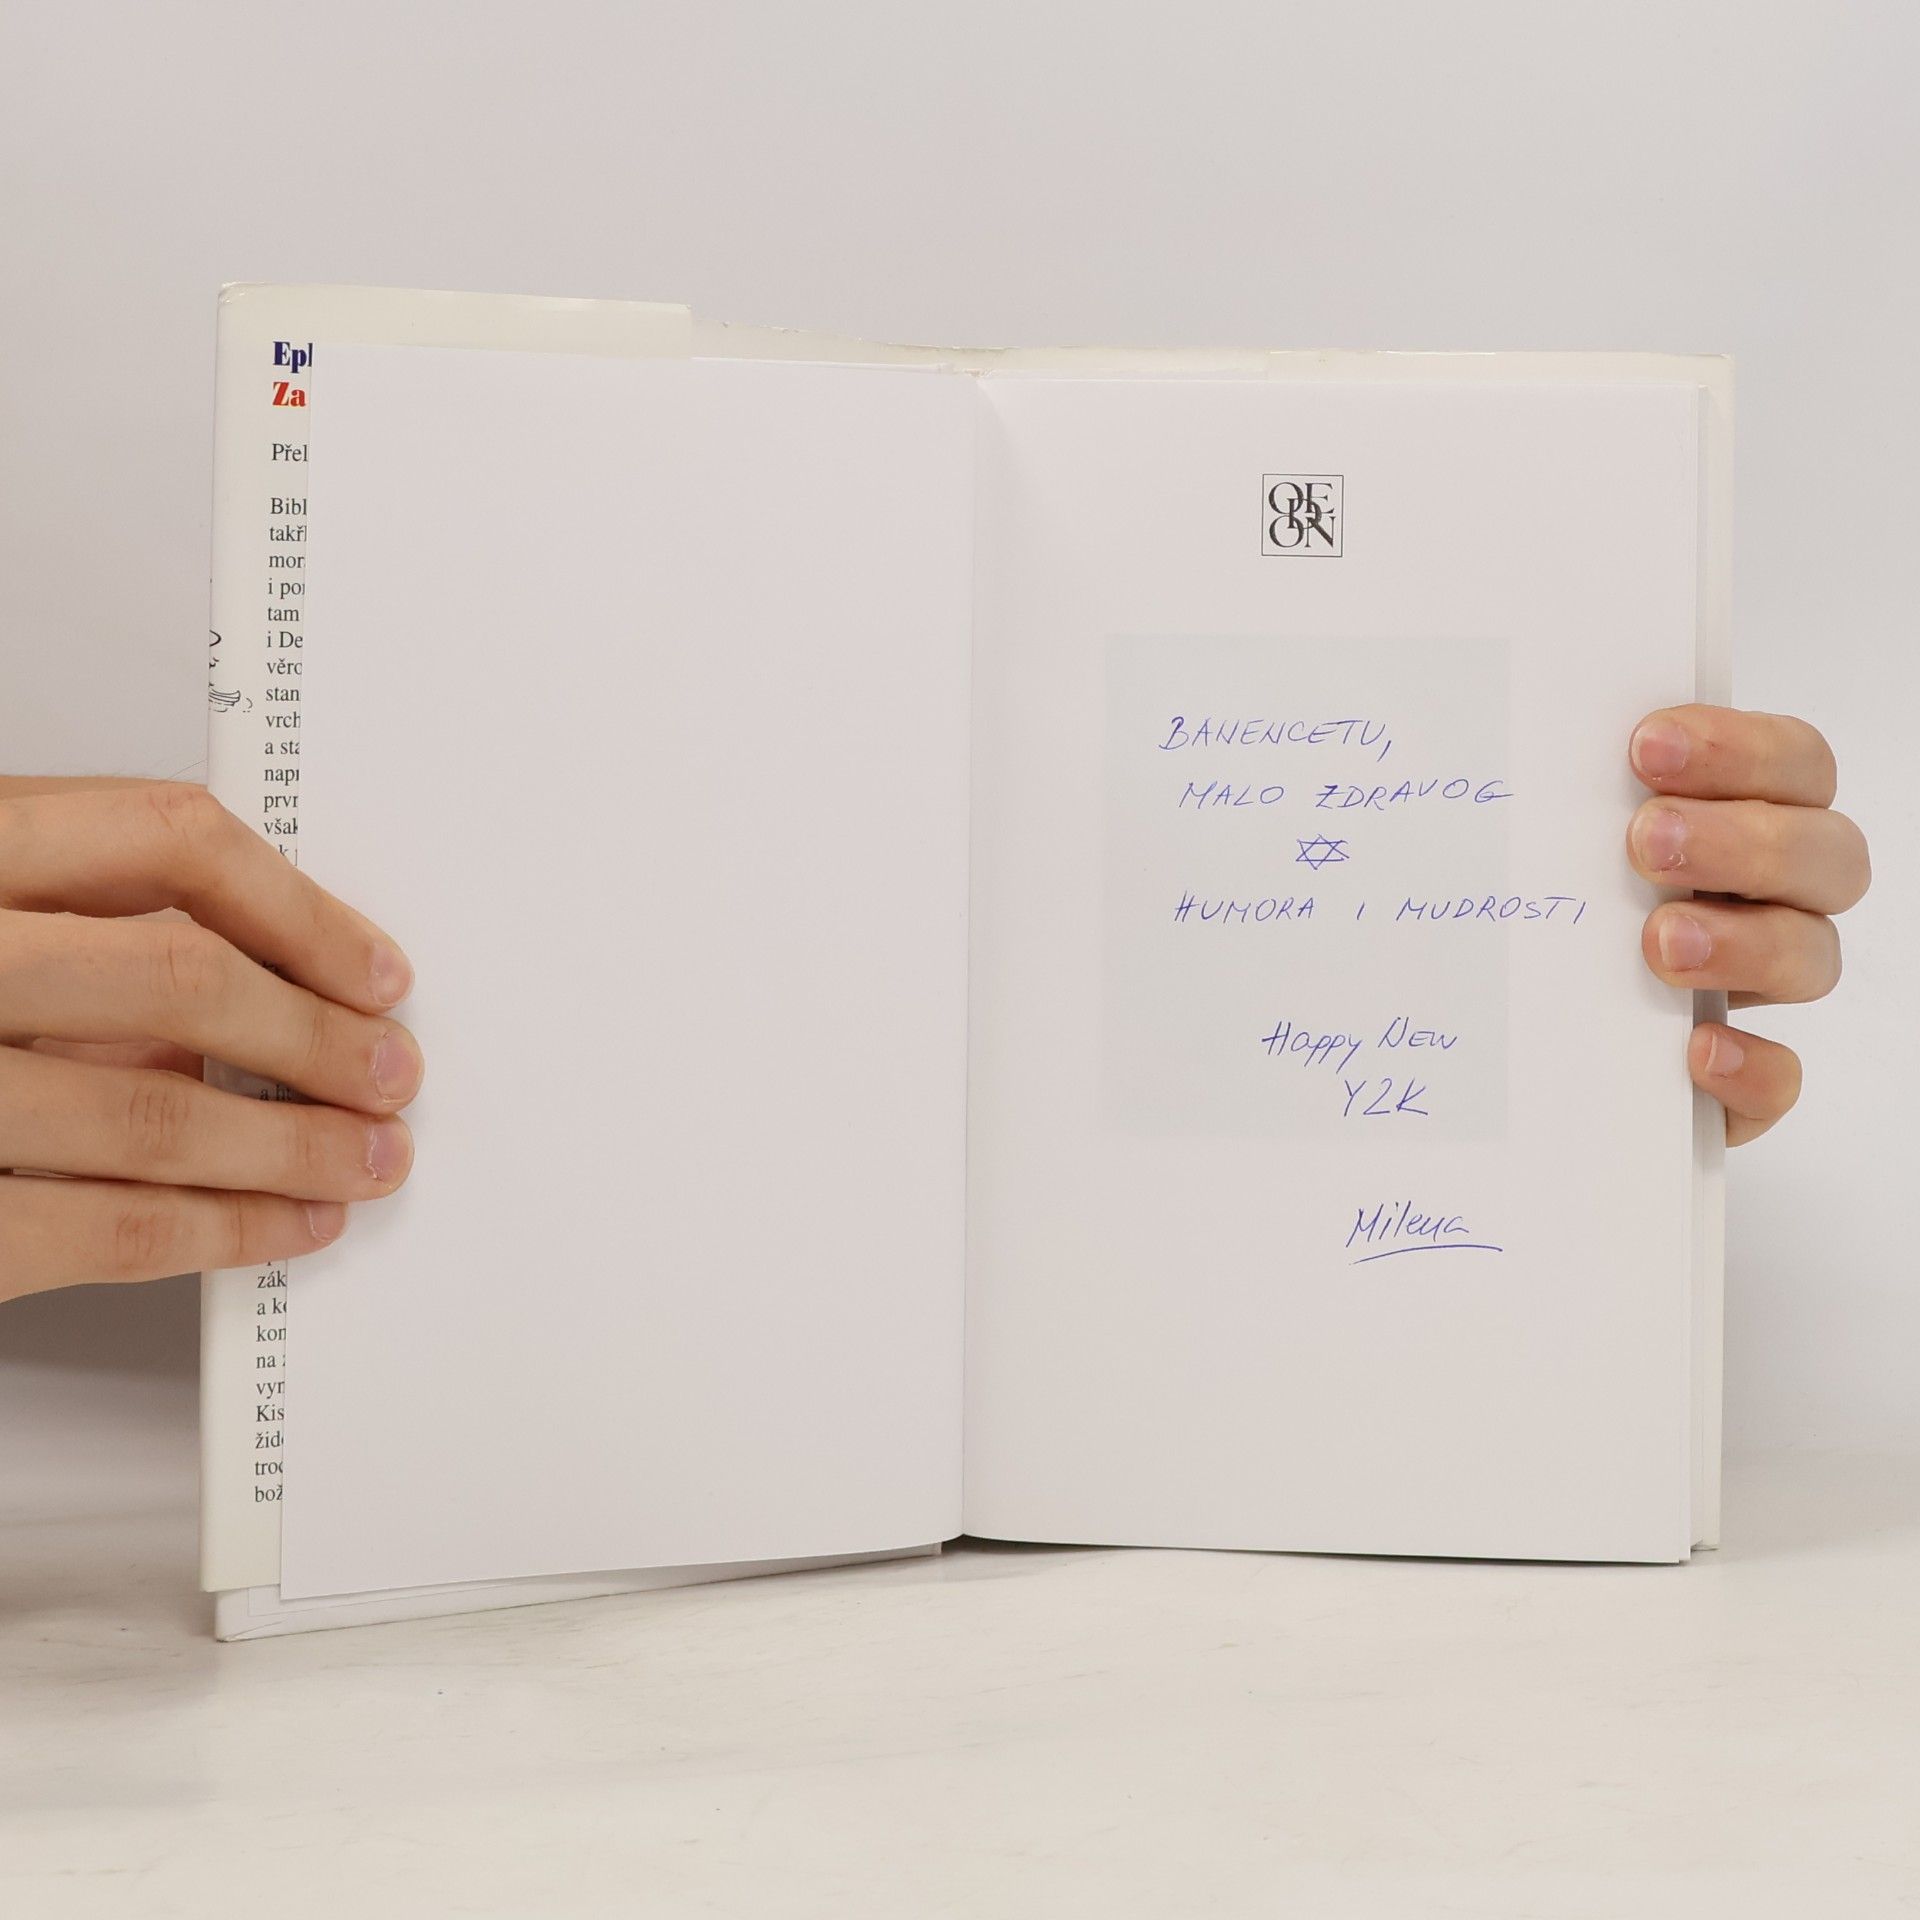 Eph
Za
Přel
Bibl
takř
mor
i po
tam
i De
věro
stan
vrch
a sta
napr
prvn
však
zák
a ko
kon
na
vyn
Kis
žid
troc
bož
OE
D
ON
BANENCETU,
MALO ZDRAVOG
HUMORA I MUDROSTI
Happy New
Y2K
Milena